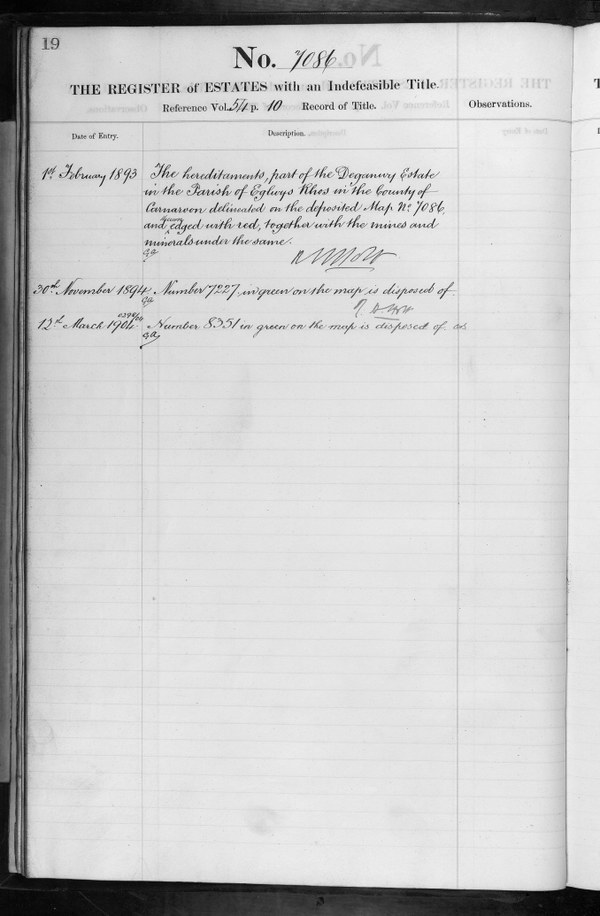 19
No. 7086
THE REGISTER of ESTATES with an Indefeasible Title.
Reference Vol. 54 p. 10 Record of Title.
Observations.
Date of Entry.
Description.
1st February 1893
The hereditaments, part of the Deganwy Estate
in the Parish of Eglwys Rhos in the County of
Carnarvon delineated on the deposited Map No. 7086,
and edged with red, together with the mines and
minerals under the same.
30th November 1894
Number 7227, in green on the map, is disposed of.
12th March 1904
Number 8351 in green on the map is disposed of